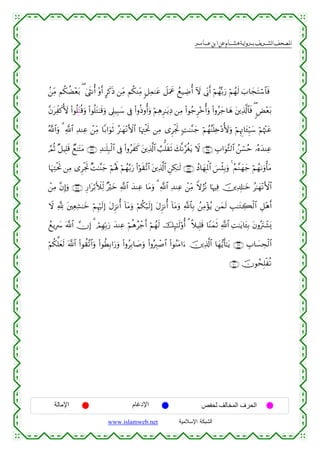 المصحف الشريف برواية هشام عن ابن عامر
فَٱسۡتَجَابَ لَهُمۡ رَبُّهُمۡ أَنِّي لَآ أُضِيعُ عَمَلَ عَٰمِلٖ مِّنكُم مِّن ذَكَرٍ أَوۡ أُنثَىٰۖ بَعۡضُكُم مِّنۢ
بَعۡضٖۖ فَٱلَّذِينَ هَاجَرُواْ وَأُخۡرِجُواْ مِن دِيَٰرِهِمۡ وَأُوذُواْ فِي سَبِيلِي وَقَٰتَلُواْ وَقُتِّلُواْ لَأُكَفِّرَنَّ
عَنۡهُمۡ سَيِّـَٔاتِهِمۡ وَلَأُدۡخِلَنَّهُمۡ جَنَّٰتٖ تَجۡرِي مِن تَحۡتِهَا ٱلۡأَنۡهَٰرُ ثَوَابٗا مِّنۡ عِندِ ٱللَّهِۚ وَٱللَّهُ
عِندَهُۥ حُسۡنُ ٱلثَّوَابِ لَا يَغُرَّنَّكَ تَقَلُّبُ ٱلَّذِينَ كَفَرُواْ فِي ٱلۡبِلَٰدِ مَتَٰعٞ قَلِيلٞ ثُمَّ
مَأۡوَىٰهُمۡ جَهَنَّمُۖ وَبِئۡسَ ٱلۡمِهَادُ لَٰكِنِ ٱلَّذِينَ ٱتَّقَوۡاْ رَبَّهُمۡ لَهُمۡ جَنَّٰتٞ تَجۡرِي مِن تَحۡتِهَا
ٱلۡأَنۡهَٰرُ خَٰلِدِينَ فِيهَا نُزُلٗا مِّنۡ عِندِ ٱللَّهِۗ وَمَا عِندَ ٱللَّهِ خَيۡرٞ لِّلۡأَبۡرَارِ وَإِنَّ مِنۡ
أَهۡلِ ٱلۡكِتَٰبِ لَمَن يُؤۡمِنُ بِٱللَّهِ وَمَآ أُنزِلَ إِلَيۡكُمۡ وَمَآ أُنزِلَ إِلَيۡهِمۡ خَٰشِعِينَ لِلَّهِ لَا
يَشۡتَرُونَ بِـَٔايَٰتِ ٱللَّهِ ثَمَنٗا قَلِيلًاۚ أُوْلَٰٓئِكَ لَهُمۡ أَجۡرُهُمۡ عِندَ رَبِّهِمۡۗ إِنَّ ٱللَّهَ سَرِيعُ
ٱلۡحِسَابِ يَٰٓأَيُّهَا ٱلَّذِينَ ءَامَنُواْ ٱصۡبِرُواْ وَصَابِرُواْ وَرَابِطُواْ وَٱتَّقُواْ ٱللَّهَ لَعَلَّكُمۡ
تُفۡلِحُونَ
الحرف المخالف لحفص الإدغام الإمالة
www.islamweb.net الشبكة الإسلامية